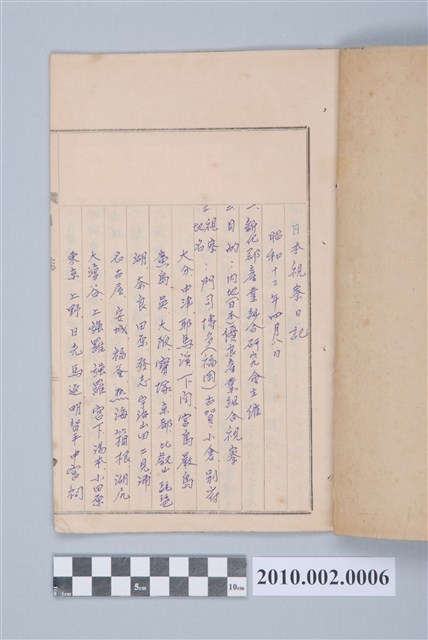 日本視察日記
昭和十二年四月八日
一、新化郡產業組合研究會主催
二、目的：內地(日本)優良產業組合視察
三、視察地名：門司 博多(福岡) 古賀 小倉 別府
大分 中津 耶馬溪 下関 宮島 嚴島
広島 吳 大阪 寶塚 京都 比叡山 琵琶
湖 奈良 田原 發志 宇治山田 二見浦
名古屋 安城 熱海 箱根 湖尻
大湧谷 上強羅 強羅 宮下 湯本 小田原
東京 上野 日光 馬返 明智平 中宮祠
5cm
10cm
2010.002.0006